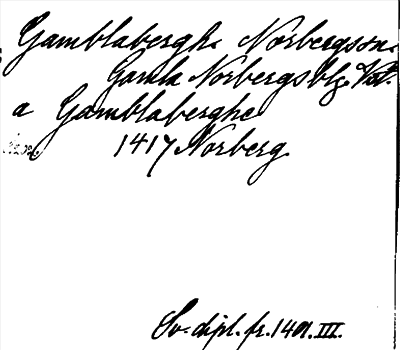 Gamblaberghe Norbergssn.
Gamla Norbergsbg. Vstm.
a Gamblaberghe
1417 Norberg.
Sv. dipl. fr. 1401. III.